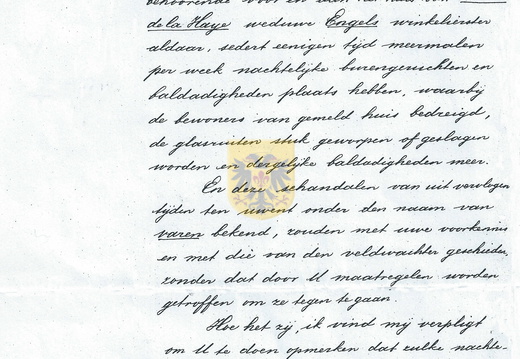 behoorende voor en aan het huis van
de la Haye weduwe Engels winkelierster
aldaar, sedert eenigen tijd meermalen
per week nachtelijke burengeruchten en
baldadigheden plaats hebben, waarbij
de bewoners van gemeld huis bedreigd,
de glasruiten stuk geworpen of geslagen
worden en dergelijke baldadigheden meer.
En deze schandalen van uit vervlogen
tijden ten uwent onder den naam van
varen bekend, zouden met uwe voorkennis
en met die van den veldwachter geschieden,
zonder dat door U maatregelen worden
getroffen om ze tegen te gaan.
Hoe het zij, ik vind mij verpligt
om U te doen opmerken dat zulke nachte-